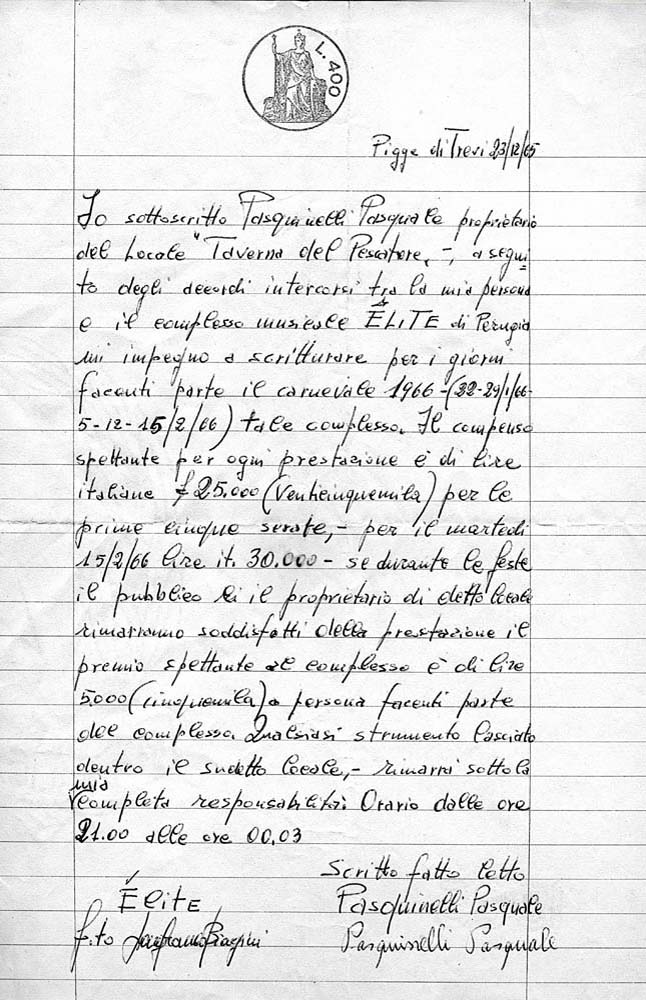 L. 400
Pigge di Trevi 23/12/65
Io sottoscritto Pasquinelli Pasquale proprietario
del Locale "Taverna del Pescatore, -, a segui
to degli accordi intercorsi tra la mia persona
e il complesso musicale ÉLITE di Perugia
mi impegno a scritturare per i giorni
facenti parte il carnevale 1966 - (22-29/1/66-
5-12-15/2/66) tale complesso. Il compenso
spettante per ogni prestazione è di lire
italiane £ 25.000 (Venticinquemila) per le
prime cinque serate, - per il martedì
15/2/66 lire it. 30.000 - se durante le feste
il pubblico il proprietario di detto locale
rimarranno soddisfatti della prestazione il
premio spettante al complesso è di lire
5000 (cinquemila) a persona facenti parte
del complesso. Qualsiasi strumento lasciato
dentro il sudetto locale, - rimarrà sotto la
mia
completa responsabilità. Orario dalle ore
21.00 alle ore 00,03
Scritto fatto letto
Élite Pasquinelli Pasquale
f.to Biagini Pasquinelli Pasquale